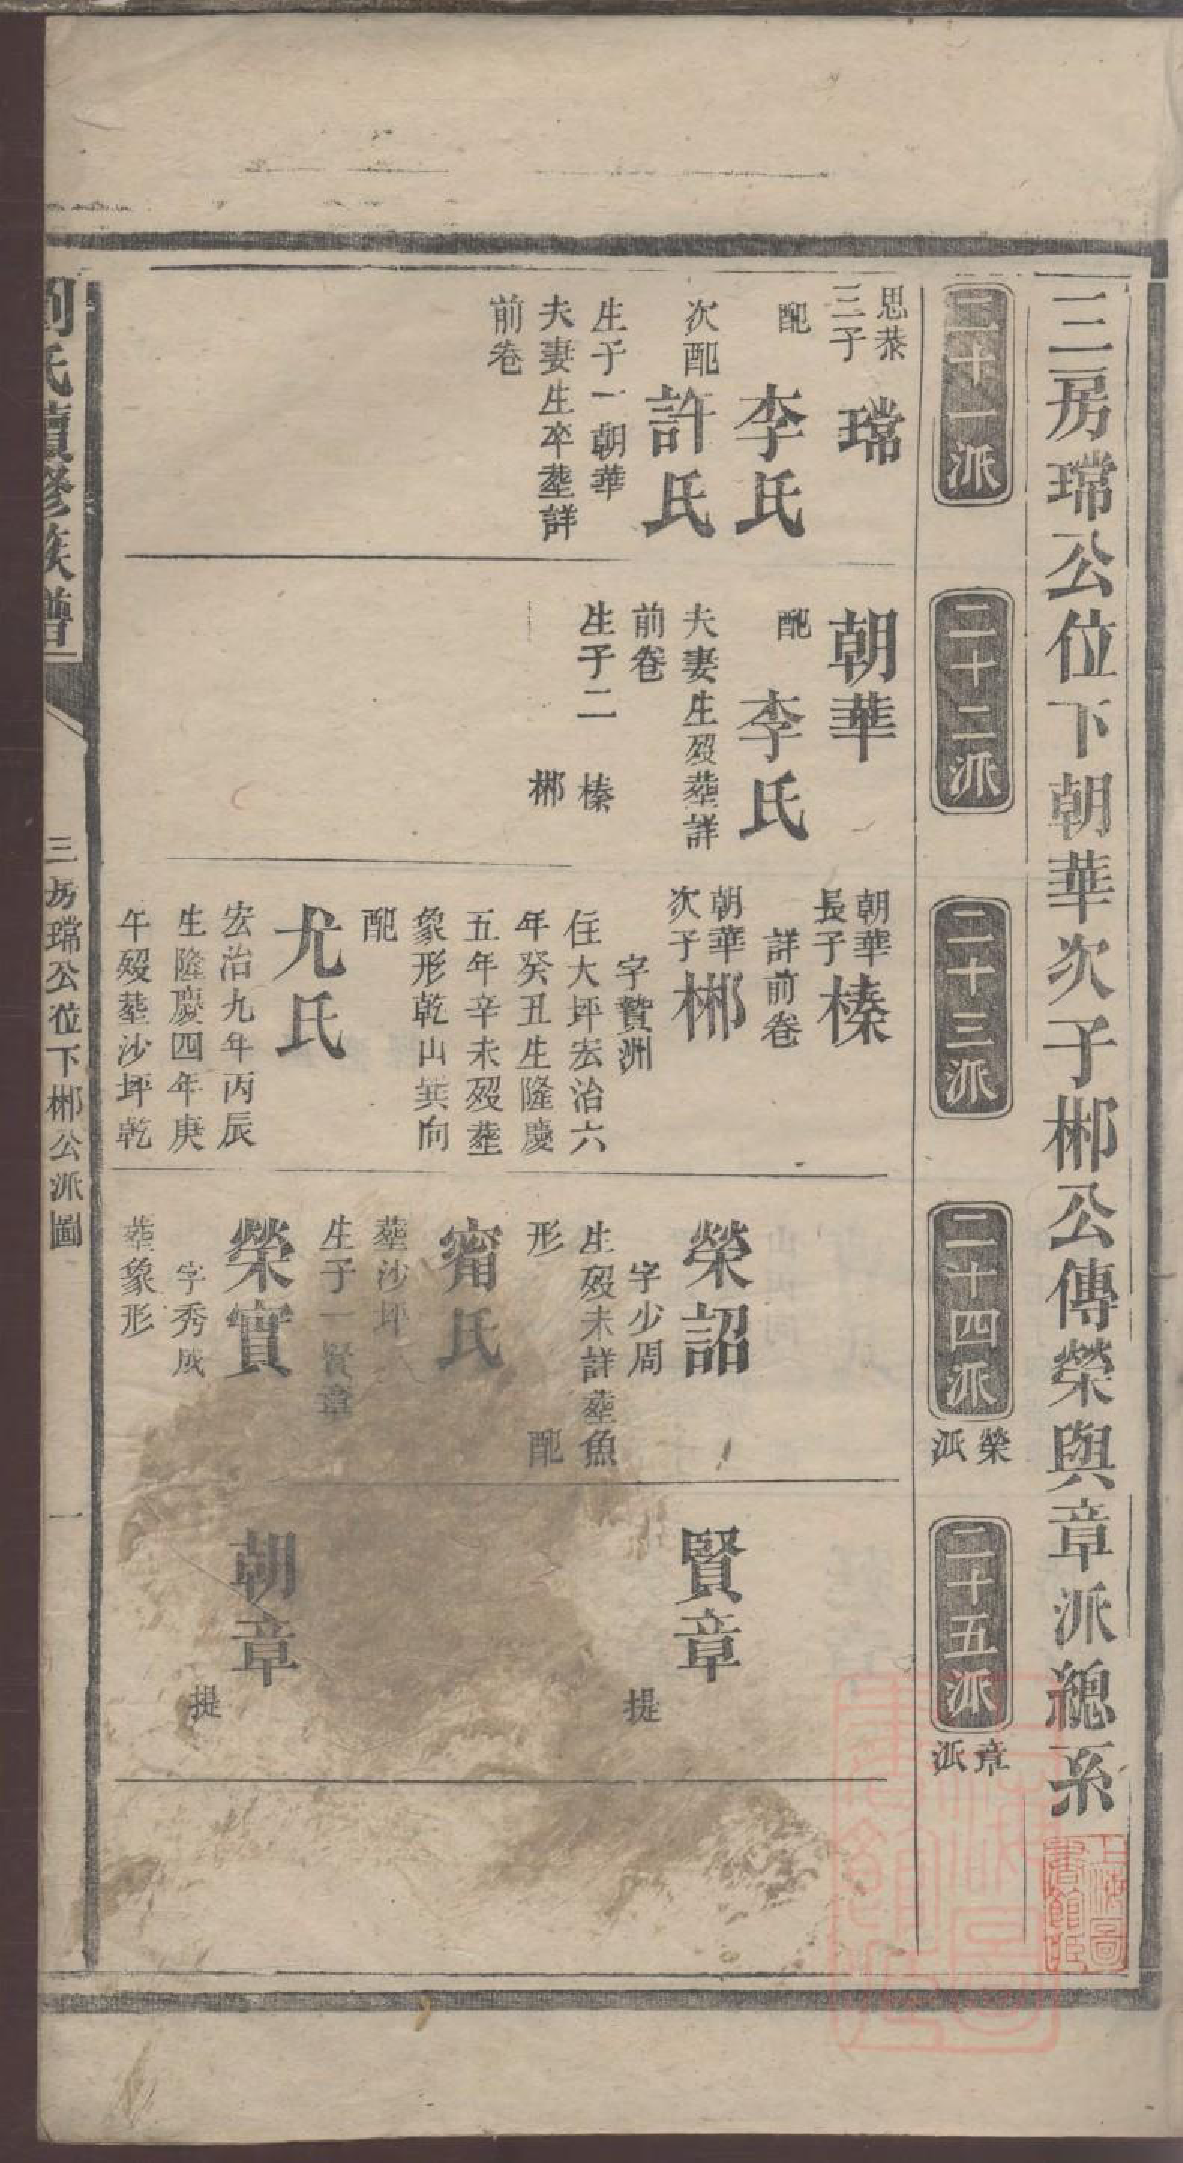 三房瑺公位下朝華次子郴公傳榮與章派總系
二十一派
二十二派
二十三派
二十四派
榮派
二十五派
章派
思恭三子
瑺
配
李氏
次配
許氏
生子一朝華
夫妻生卒塟詳
前卷
朝華
配
李氏
夫妻生歿塟詳
前卷
生子二
榛
郴
朝華長子
榛
詳前卷
朝華次子
郴
字贊洲
住大坪宏治六
年癸丑生隆慶
五年辛未歿塟
象形乾山巽向
配
尤氏
宏治九年丙辰
生隆慶四年庚
午歿塟沙坪乾
榮詔
字少周
生歿未詳塟魚
形
配
甯氏
塟沙坪
生子一賢章
榮實
字秀成
塟象形
賢章
提
朝章
提
劉氏續修族譜
三房瑺公位下郴公派圖
一
上海圖書館藏